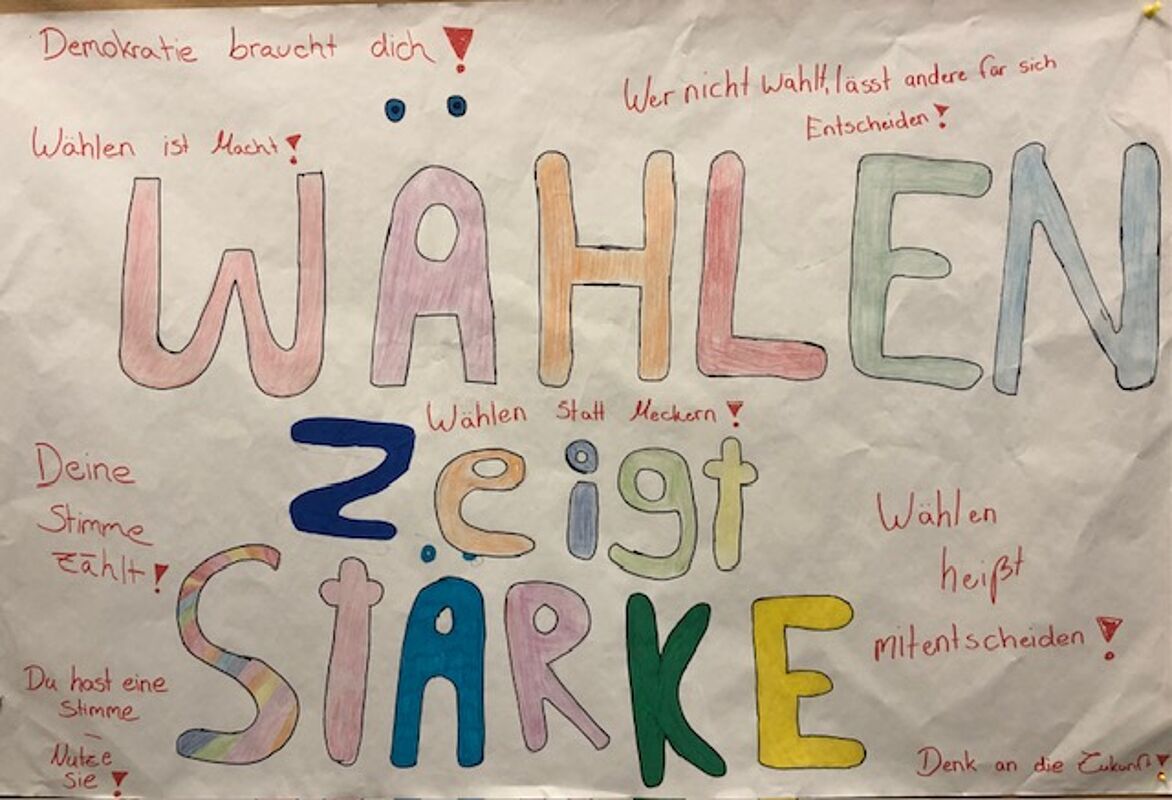 Demokratie braucht dich!
Wer nicht Wählt, lässt andere für sich
Entscheiden!
Wählen ist Macht!
WÄHLEN
Wählen statt Meckern!
zeigt
STÄRKE
Deine
Stimme
zählt!
Wählen
heißt
mitentscheiden!
Du hast eine
Stimme
–
Nutze
sie!
Denk an die Zukunft!